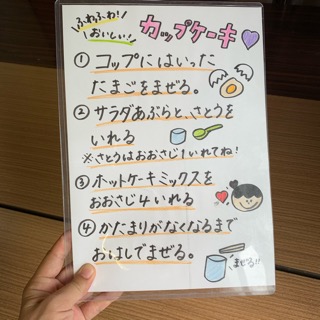 ふわふわ！
おいしい！
カップケーキ
① コップにはいった
たまごをまぜる。
② サラダあぶらと、さとうを
いれる
※さとうはおおさじ1いれてね！
③ ホットケーキミックスを
おおさじ4いれる
④ かたまりがなくなるまで
おはしでまぜる。
まぜる!!